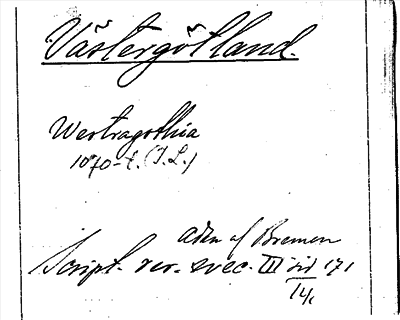 Västergötland.
Westragothia
1070-t. (J.L.)
Adam af Bremen
Script. rer. svec. III sid 171